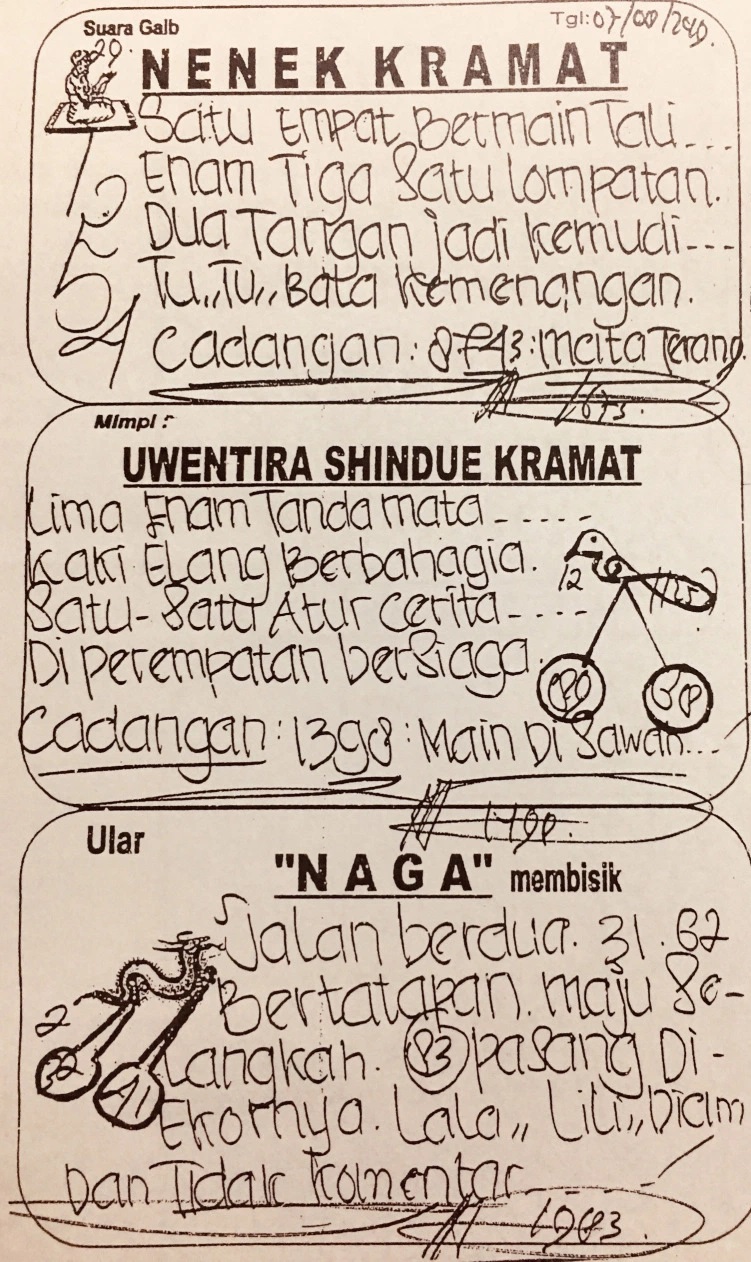 Suara Gaib
Tgl:
20
NENEK KRAMAT
Satu Empat Bermain Tali...
Enam Tiga Satu lompatan.
Dua Tangan jadi kemudi---
Tu,,Tu,, Bata kemenangan.
Cadangan: 8743: Mata Terang.
1673.
Mimpi :
UWENTIRA SHINDUE KRAMAT
Lima Enam Tanda mata -----
Kaki Elang Berbahagia.
Satu-Satu Atur cerita ----
Di perempatan berSiaga.
12
Cadangan: 1398: Main Di Sawah...
1490.
Ular
"NAGA" membisik
Jalan berdua. 31. 62
Bertatapan. maju Se-
2
Langkah. 83 pasang Di-
Ekornya. Lala,, Lili,, Diam
Dan Tidak Komentar
1983.